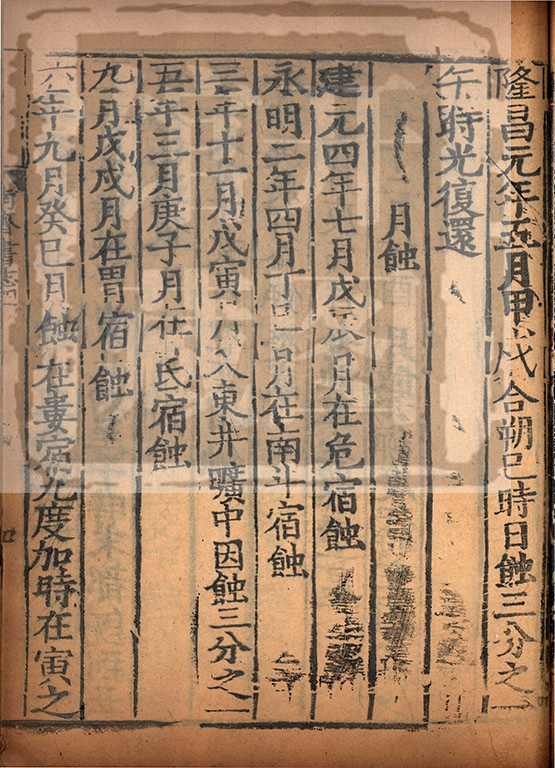 隆昌元年五月甲戌合朔巳時日蝕三分之一
午時光復還
月蝕
建元四年七月戊辰月在危宿蝕
永明二年四月丁巳月在南斗宿蝕
三年十一月戊寅月入東井曠中因蝕三分之一
五年三月庚子月在氐宿蝕
九月戊戌月在胃宿蝕
六年九月癸巳月蝕在婁宿九度加時在寅之